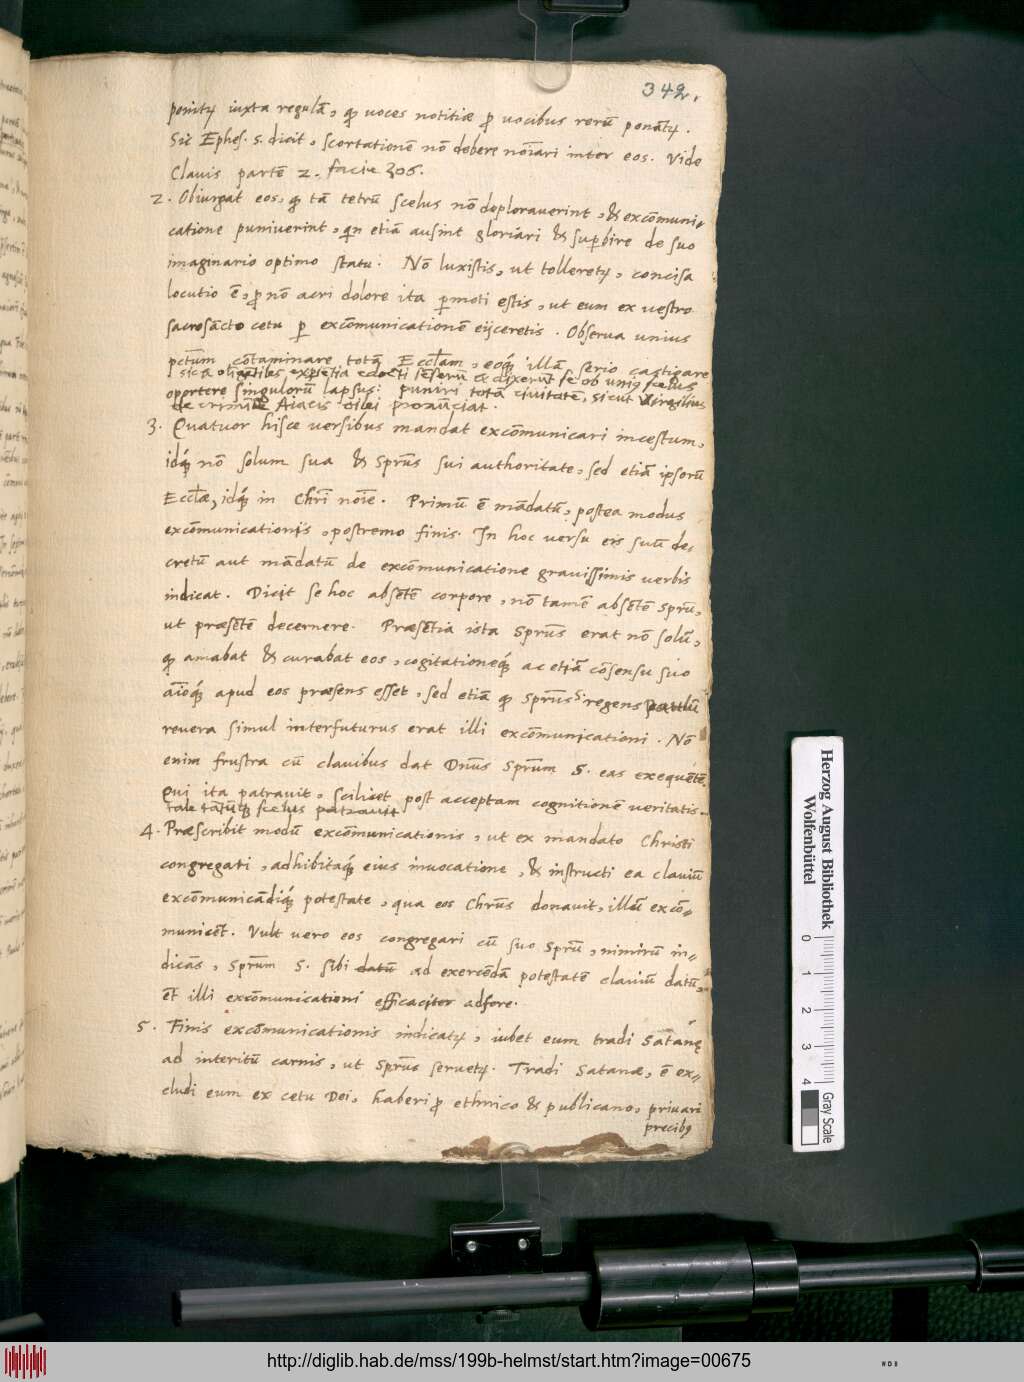 342.
ponitʳ iuxta regulā, qđ uoces notitiæ ꝓ uocibus rerū ponātʳ.
Sic Ephes. 5. dicit, scortationē nō debere noīari inter eos. Vide
Clavis partē 2. facie 306.
2. Obiurgat eos, qđ tā tetrū scelus nō deplorauerint, & excōmuni-
catione puniuerint, qn etiā ausint gloriari & suꝑbire de suo
imaginario optimo statu. Nō luxistis, ut tolleretʳ, concisa
locutio ē, ꝓ nō acri dolore ita ꝑmoti estis, ut eum ex uestro
sacrosācto cetu ꝑ excōmunicationē eijceretis. Obserua unius
pctum cōtaminare totā Eccłam, eoqꝫ illā serio castigare
oportere singulorū lapsus: puniri totā ciuitatē, sicut Virgilius
de crimine Aiacis Oilei pronūciat.
3. Quatuor hisce versibus mandat excōmunicari incestum,
idqꝫ nō solum sua & Sprūs sui authoritate, sed etiā ipsorū
Eccłæ, idqꝫ in Chrī noīe. Primū ē mādatū, postea modus
excōmunicationis, postremo finis. In hoc versu eis suū de-
cretū aut mādatū de excōmunicatione grauissimis verbis
indicat. Dicit se hoc absētē corpore, nō tamē absētē sprū,
ut præsētē decernere. Præsētia ista Sprūs erat nō solū,
qđ amabat & curabat eos, cogitationeqꝫ ac etiā cōsensu suo
aīoqꝫ apud eos præsens esset, sed etiā qđ Sprūs S. regens Paulū
reuera simul interfuturus erat illi excōmunicationi. Nō
enim frustra cū clauibus dat Dnūs Sprūm S. eas exequētē.
qui ita patrauit, scilicet post acceptam cognitionē veritatis
tale tātūqꝫ scelus patrauit
4. Præscribit modū excōmunicationis, ut ex mandato Christi
congregati, adhibitaqꝫ eius inuocatione, & instructi ea clauiū
excōmunicādiqꝫ potestate, qua eos Chrūs donauit, illū excō-
municēt. Vult uero eos congregari cū suo sprū, nimirū in-
dicās, Sprūm S. sibi datū ad exercēdā potestatē clauiū datū,
ēt illi excōmunicationi efficaciter adfore.
5. Finis excōmunicationis indicatʳ, iubet eum tradi Satanę
ad interitū carnis, ut Sprūs seruetʳ. Tradi Satanæ, ē ex-
cludi eum ex cetu Dei, haberi ꝓ ethnico & publicano, priuari
precibꝰ
Herzog August Bibliothek
Wolfenbüttel
0 1 2 3 4
Gray Scale
http://diglib.hab.de/mss/199b-helmst/start.htm?image=00675